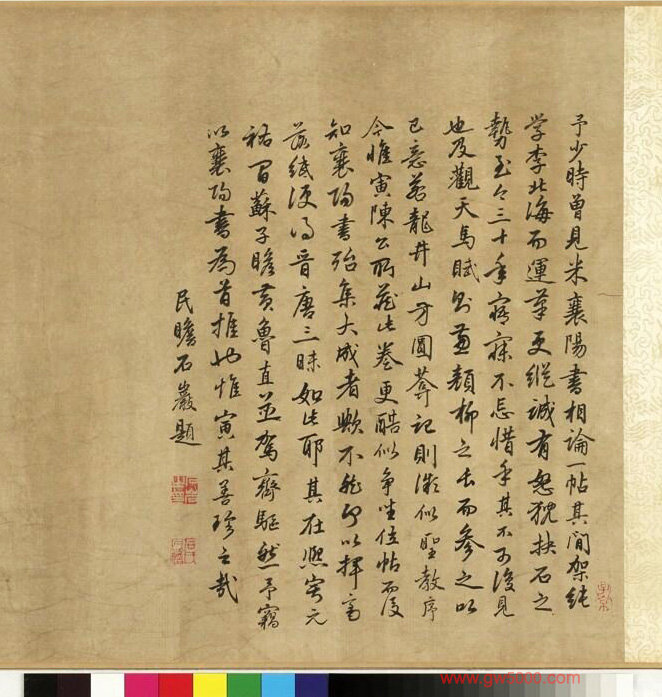 予少時曾見米襄陽書相論一帖其間架純
学李北海而運筆更縱誠有怒猊抉石之
勢至今三十年寤寐不忘惜乎其不可復見
也及觀天馬賦則蒹顏柳之長而參之以
己意若龍井山方圓菴記則微似聖教序
今惟寅陳公所藏此卷更酷似爭坐位帖而後
知襄陽書殆集大成者歟不然何以揮毫
落紙便得晉唐三昧如此耶其在熙寧元
祐間蘇子瞻黃魯直並駕齊驅然予竊
以襄陽書為首推也惟寅其善珍之哉
民瞻石巖題
www.gw5000.com